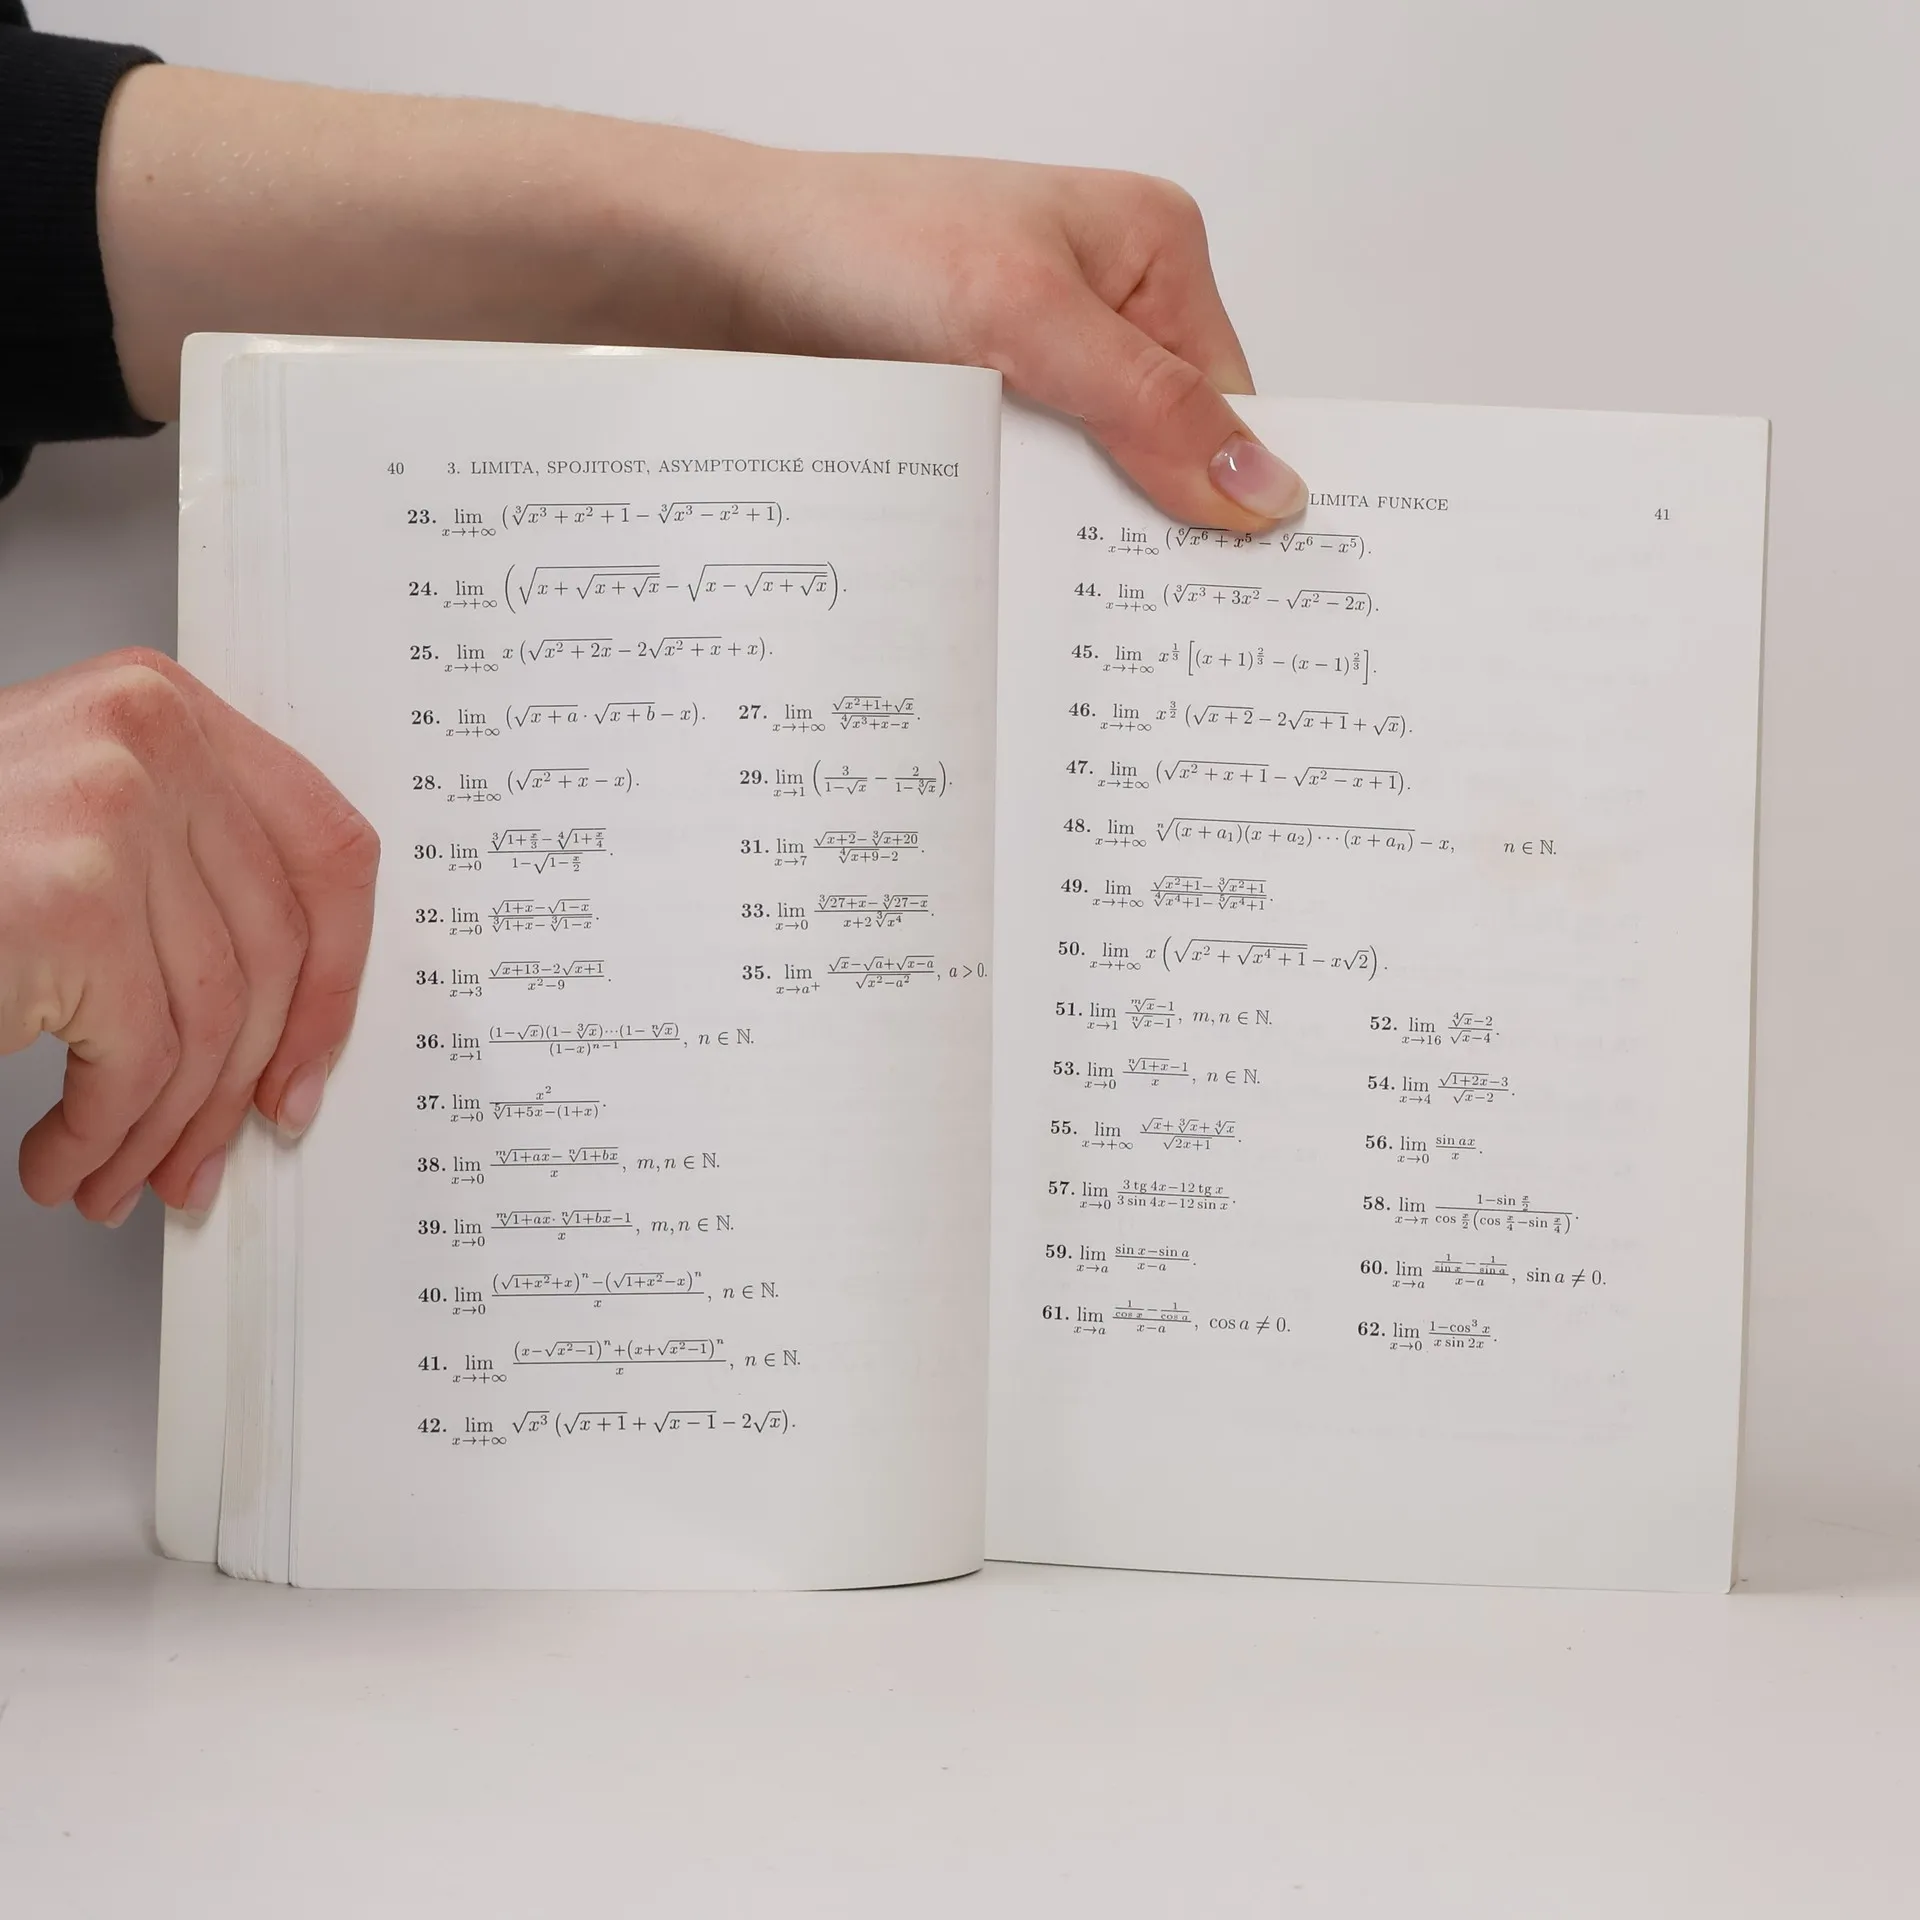 40 3. LIMITA, SPOJITOST, ASYMPTOTICKÉ CHOVÁNÍ FUNKCÍ
23. lim_{x→+∞} (∛(x³ + x² + 1) − ∛(x³ − x² + 1)).
24. lim_{x→+∞} (√(x + √(x + √x)) − √(x − √(x + √x))).
25. lim_{x→+∞} x (√(x² + 2x) − 2√(x² + x) + x).
26. lim_{x→+∞} (√(x + a) · √(x + b) − x). 27. lim_{x→+∞} (√(x²+1)+√x)/(∜(x³+x)−x).
28. lim_{x→±∞} (√(x² + x) − x). 29. lim_{x→1} (3/(1−√x) − 2/(1−∛x)).
30. lim_{x→0} (∛(1+x/3)−∜(1+x/4))/(1−√(1−x/2)). 31. lim_{x→7} (√(x+2)−∛(x+20))/(∜(x+9)−2).
32. lim_{x→0} (√(1+x)−√(1−x))/(∛(1+x)−∛(1−x)). 33. lim_{x→0} (∛(27+x)−∛(27−x))/(x+2∛(x⁴)).
34. lim_{x→3} (√(x+13)−2√(x+1))/(x²−9). 35. lim_{x→a⁺} (√x−√a+√(x−a))/√(x²−a²), a > 0.
36. lim_{x→1} ((1−√x)(1−∛x)⋯(1−ⁿ√x))/(1−x)ⁿ⁻¹, n ∈ ℕ.
37. lim_{x→0} x²/(⁵√(1+5x)−(1+x)).
38. lim_{x→0} (ᵐ√(1+ax)−ⁿ√(1+bx))/x, m, n ∈ ℕ.
39. lim_{x→0} (ᵐ√(1+ax)·ⁿ√(1+bx)−1)/x, m, n ∈ ℕ.
40. lim_{x→0} ((√(1+x²)+x)ⁿ−(√(1+x²)−x)ⁿ)/x, n ∈ ℕ.
41. lim_{x→+∞} ((x−√(x²−1))ⁿ+(x+√(x²−1))ⁿ)/x, n ∈ ℕ.
42. lim_{x→+∞} √(x³) (√(x + 1) + √(x − 1) − 2√x).
LIMITA FUNKCE 41
43. lim_{x→+∞} (⁶√(x⁶ + x⁵) − ⁶√(x⁶ − x⁵)).
44. lim_{x→+∞} (∛(x³ + 3x²) − √(x² − 2x)).
45. lim_{x→+∞} x^{1/3} [(x + 1)^{2/3} − (x − 1)^{2/3}].
46. lim_{x→+∞} x^{3/2} (√(x + 2) − 2√(x + 1) + √x).
47. lim_{x→±∞} (√(x² + x + 1) − √(x² − x + 1)).
48. lim_{x→+∞} ⁿ√((x + a₁)(x + a₂)⋯(x + aₙ)) − x, n ∈ ℕ.
49. lim_{x→+∞} (√(x²+1)−∛(x²+1))/(∜(x⁴+1)−⁵√(x⁴+1)).
50. lim_{x→+∞} x (√(x² + √(x⁴ + 1)) − x√2).
51. lim_{x→1} (ᵐ√x−1)/(ⁿ√x−1), m, n ∈ ℕ. 52. lim_{x→16} (∜x−2)/(√x−4).
53. lim_{x→0} (ⁿ√(1+x)−1)/x, n ∈ ℕ. 54. lim_{x→4} (√(1+2x)−3)/(√x−2).
55. lim_{x→+∞} (√x+∛x+∜x)/√(2x+1). 56. lim_{x→0} (sin ax)/x.
57. lim_{x→0} (3 tg 4x−12 tg x)/(3 sin 4x−12 sin x). 58. lim_{x→π} (1−sin x/2)/(cos x/2 (cos x/4−sin x/4)).
59. lim_{x→a} (sin x−sin a)/(x−a). 60. lim_{x→a} (1/(sin x)−1/(sin a))/(x−a), sin a ≠ 0.
61. lim_{x→a} (1/(cos x)−1/(cos a))/(x−a), cos a ≠ 0. 62. lim_{x→0} (1−cos³ x)/(x sin 2x).